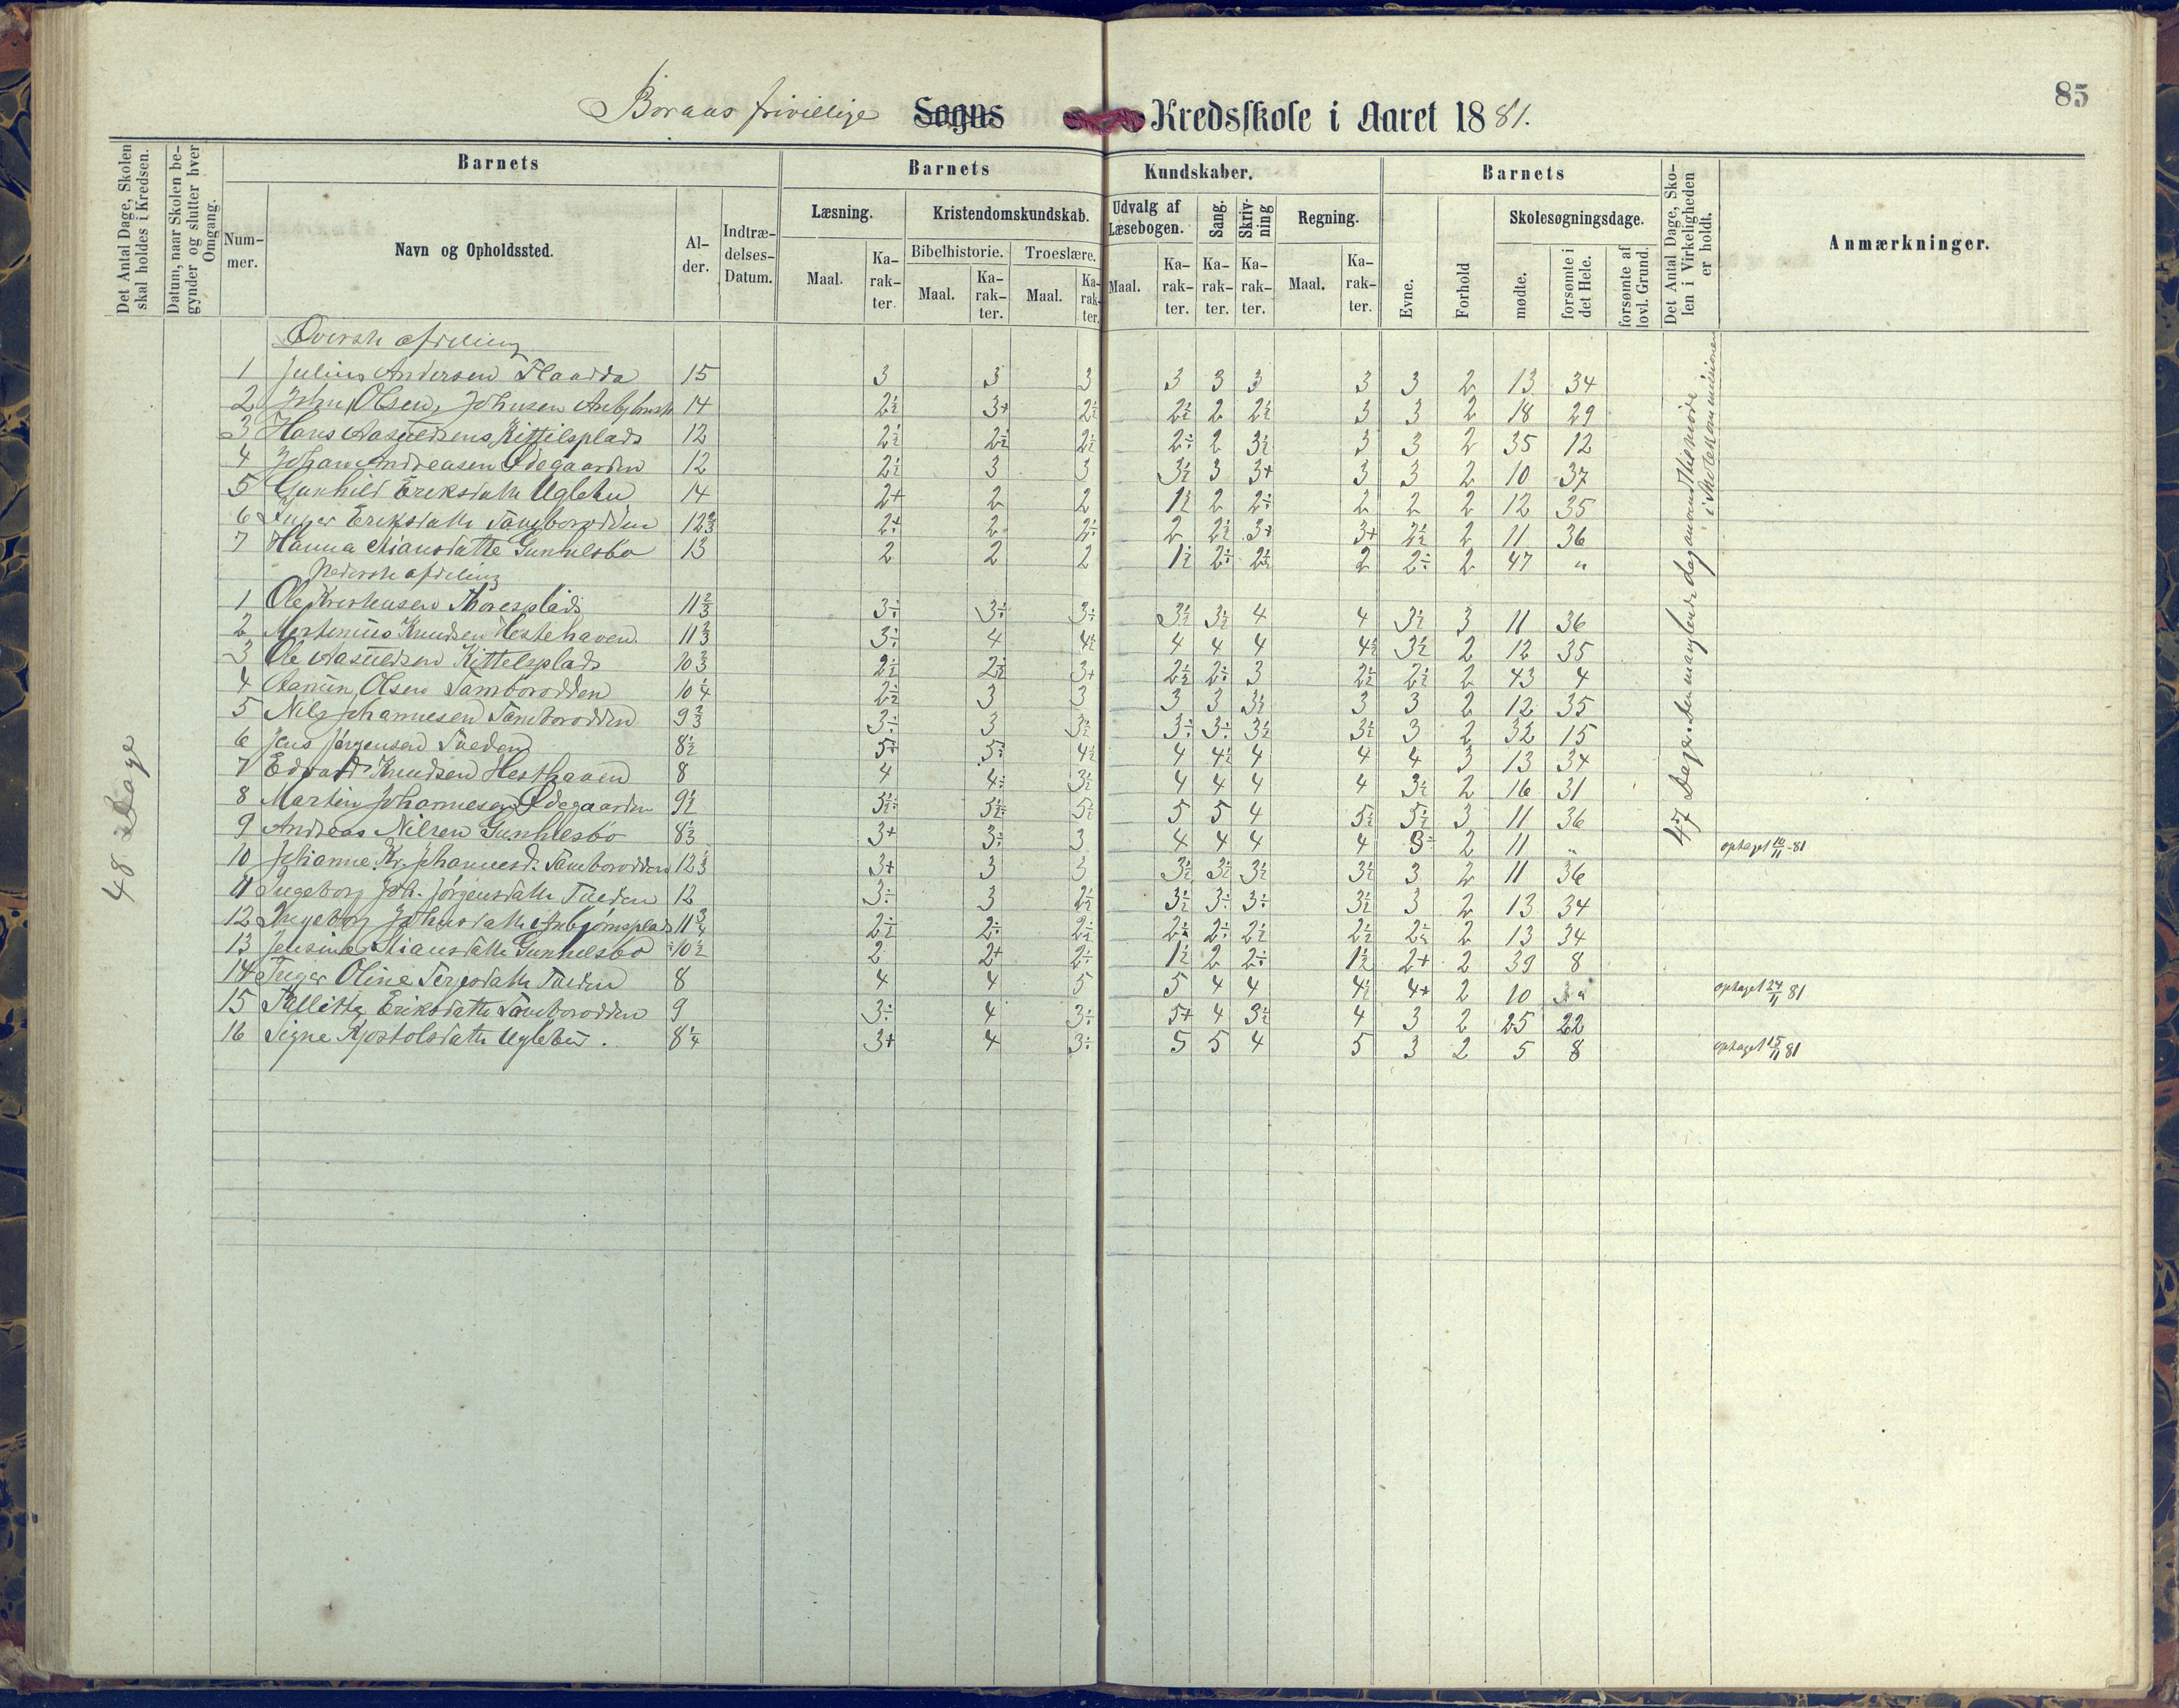 85
Boraas frivillige Sogns Kredsskole i Aaret 1881.
Det Antal Dage, Skolen skal holdes i Kredsen.
Datum, naar Skolen begynder og slutter hver Omgang.
Barnets
Nummer.
Navn og Opholdssted.
Alder.
Indtrædelses-Datum.
Barnets Kundskaber.
Læsning.
Maal.
Karakter.
Kristendomskundskab.
Bibelhistorie.
Maal.
Karakter.
Troeslære.
Maal.
Karakter.
Udvalg af Læsebogen.
Maal.
Karakter.
Sang.
Karakter.
Skrivning
Karakter.
Regning.
Maal.
Karakter.
Barnets
Evne.
Forhold
Skolesøgningsdage.
mødte.
forsømte i det Hele.
forsømte af lovl. Grund.
Det Antal Dage, Skolen i Virkeligheden er holdt.
Anmærkninger.
48 Dage
47 Dage. Den manglende dag anvendt til møde i Skolekommissionen
Øverste afdeling
1 Julius Andersen Flaadda 15 3 3 3 3 3 3 3 3 2 13 34
2 John Olsen, Johnsen 14 2½ 3+ 2½ 2½ 2 2½ 3 3 2 18 29
3 Hans Aasuldsens Kittilsplads 12 2½ 2½ 2½ 2÷ 2 3½ 3 3 2 35 12
4 Johan Andreasen Ødegaarden 12 2½ 3 3 3½ 3 3+ 3 3 2 10 37
5 Gunhild Eriksdatte Uglebu 14 2+ 2 2 1½ 2 2÷ 2 2 2 12 35
6 Inger Eriksdatte Tamborodden 12⅔ 2÷ 2 2÷ 2 2½ 3+ 3+ 2½ 2 11 36
7 Hanna Stiansdatte Gunhilsbo 13 2 2 2 1½ 2÷ 2½ 2 2÷ 2 47 "
Nederste afdeling
1 Ole Kristensen Thoresplads 11⅔ 3÷ 3÷ 3÷ 3½ 3½ 4 4 3½ 3 11 36
2 Mortenius Knudsen Hestehaven 11⅔ 3÷ 4 4½ 4 4 4 4½ 3½ 2 12 35
3 Ole Aasuldsen Kittelsplads 10⅔ 2½ 2½ 3+ 2½ 2÷ 3 2½ 2½ 2 43 4
4 Aanun Olsen Tamborodden 10¼ 2½ 3 3 3 3 3½ 3 3 2 12 35
5 Nils Johannesen Tamborodden 9⅔ 3÷ 3 3½ 3÷ 3÷ 3½ 3½ 3 2 32 15
6 Jens Jørgensen Tveden 8½ 5+ 5÷ 4½ 4 4½ 4 4 4 3 13 34
7 Edvard Knudsen Hesthaven 8 4 4÷ 3½ 4 4 4 4 3½ 2 16 31
8 Martin Johannesen Ødegaarden 9½ 5½ 5½ 5½ 5 5 4 5½ 5½ 3 11 36
9 Andreas Nilsen Gunhilsbo 8⅓ 3+ 3÷ 3 4 4 4 4 3÷ 2 11 " optaget 10/11-81
10 Johanne Kr. Johannesd. Tamborodden 12⅓ 3+ 3 3 3½ 3½ 3½ 3½ 3 2 11 36
11 Ingeborg Joh. Jørgensdatte Tveden 12 3÷ 3 2½ 3½ 3÷ 3÷ 3½ 3 2 13 34
12 Ingeborg Johnsdatte Anbjørnsplads 11¾ 2½ 2÷ 2½ 2½ 2÷ 2½ 2½ 2½ 2 13 34
13 Jensine Stiansdatte Gunhilsbo 10½ 2 2+ 2÷ 1½ 2 2÷ 1½ 2+ 2 39 8
14 Inger Oline Terjesdatte Tveden 8 4 4 5 5 4 4 4½ 4+ 2 10 optaget 24/11 81
15 Eriksdatte Tamborodden 9 3÷ 4 3÷ 5+ 4 3½ 4 3 2 25 22
16 Signe Kjostolsdatte Uglebu. 8¼ 3+ 4 3÷ 5 5 4 5 3 2 5 8 optaget 15/11 81